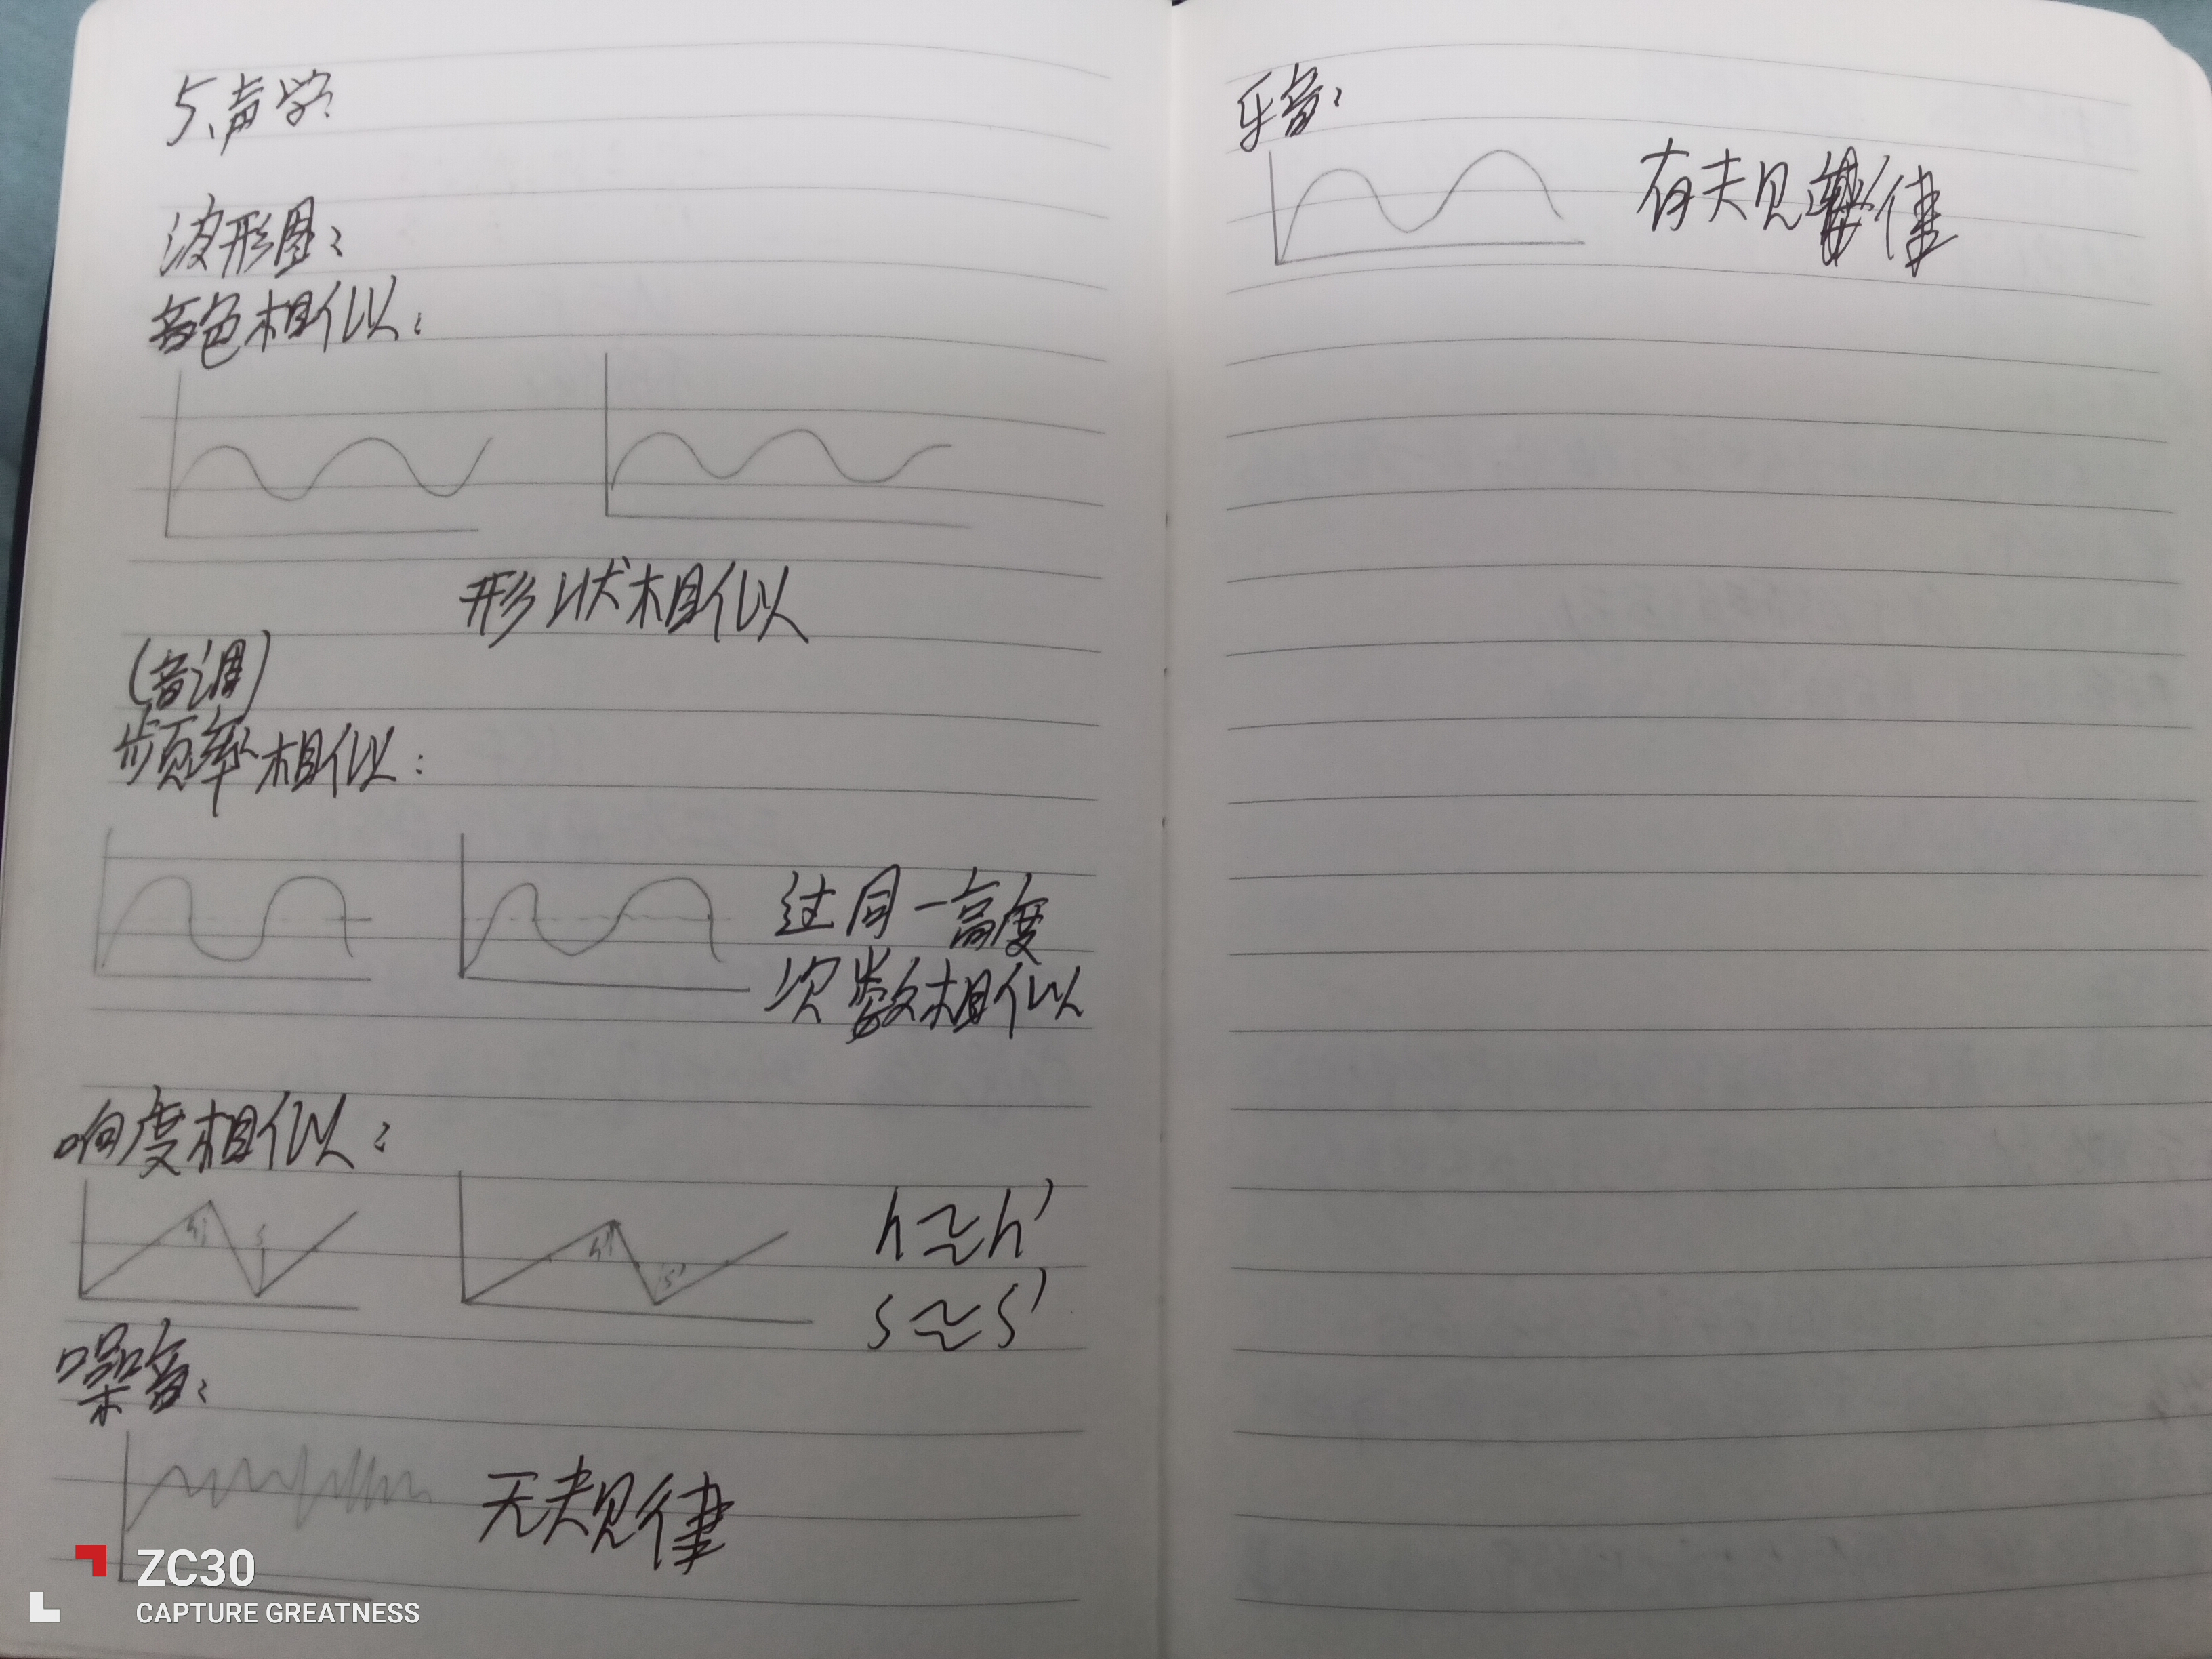 5、声学:
波形图:
音色相似:
形状相似
(音调)
频率相似:
过同一高度
次数相似
响度相似:
h h' h≈h'
s s' s≈s'
噪音:
无规律
ZC30
CAPTURE GREATNESS
乐音:
有规律